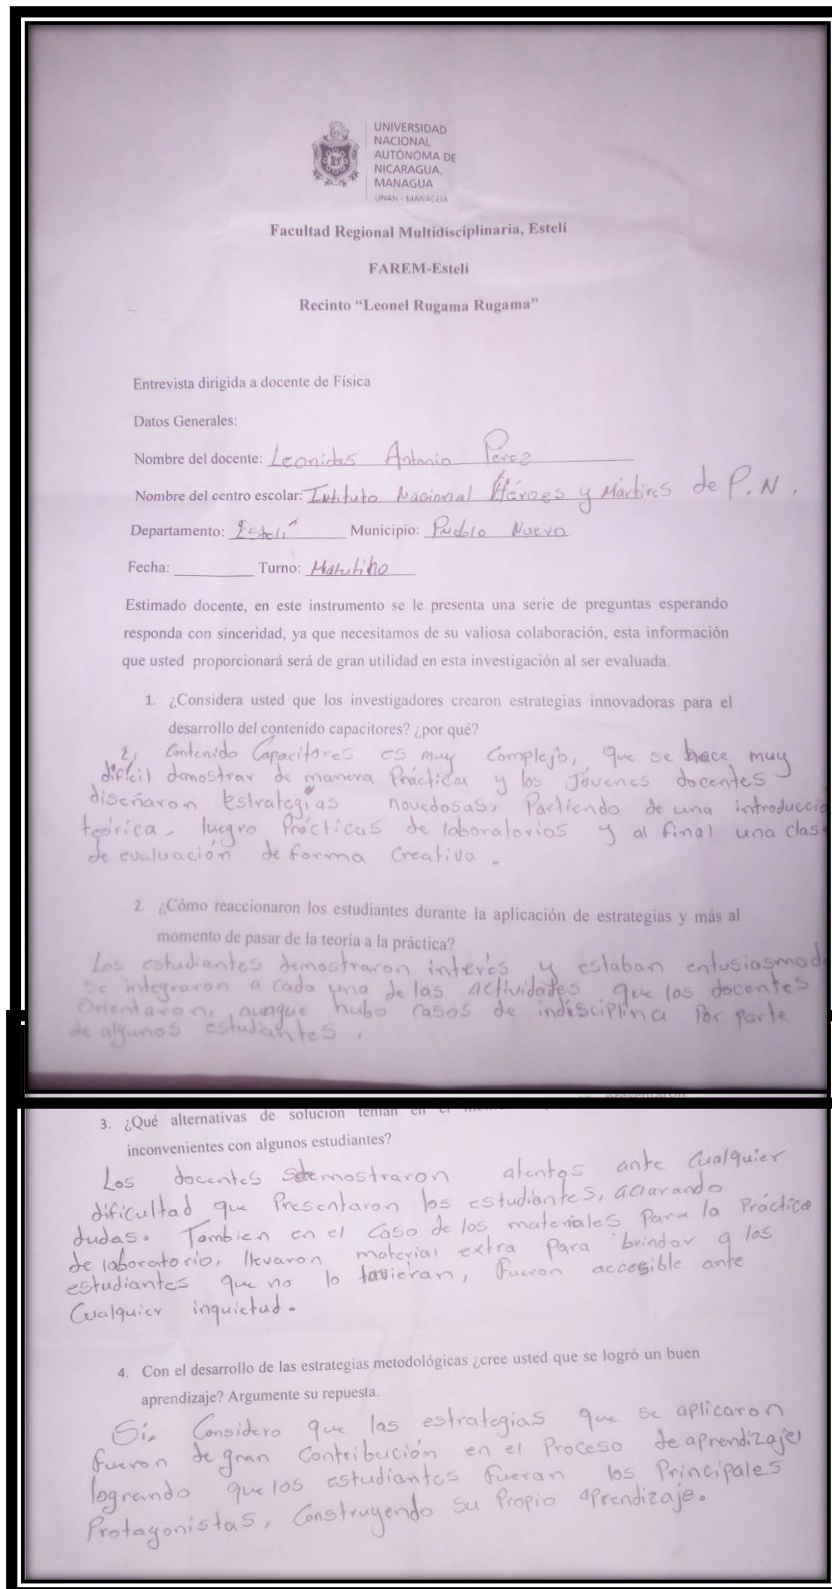 UNIVERSIDAD
NACIONAL
AUTÓNOMA DE
NICARAGUA,
MANAGUA
UNAN - MANAGUA
Facultad Regional Multidisciplinaria, Estelí
FAREM-Estelí
Recinto “Leonel Rugama Rugama”
Entrevista dirigida a docente de Física
Datos Generales:
Nombre del docente: Leonidas Antonio Pérez
Nombre del centro escolar: Intituto Nacional Héroes y Mártires de P.N.
Departamento: Estelí Municipio: Pueblo Nuevo
Fecha: Turno: Matutino
Estimado docente, en este instrumento se le presenta una serie de preguntas esperando
responda con sinceridad, ya que necesitamos de su valiosa colaboración, esta información
que usted proporcionará será de gran utilidad en esta investigación al ser evaluada.
1. ¿Considera usted que los investigadores crearon estrategias innovadoras para el
desarrollo del contenido capacitores? ¿por qué?
Contenido Capacitores es muy Complejo, que se hace muy
dificil demostrar de manera Práctica y los Jóvenes docentes
diseñaron Estrategias novedosas, Partiendo de una introducció
teórica, luegro Prácticas de laboratorios y al final una clas
de evaluación de forma Creativa.
2. ¿Cómo reaccionaron los estudiantes durante la aplicación de estrategias y más al
momento de pasar de la teoría a la práctica?
Los estudiantes demostraron interés y estaban entusiasmad
Se integraron a cada una de las actividades que los docentes
Orientaron, aunque hubo casos de indisciplina Por parte
de algunos estudiantes.
3. ¿Qué alternativas de solución tenían en
inconvenientes con algunos estudiantes?
Los docentes demostraron atentos ante Cualquier
dificultad que Presentaron los estudiantes, aclarando
dudas. Tambien en el Caso de los materiales Para la Práctica
de laboratorio, llevaron material extra para brindar a los
estudiantes que no lo tuvieran, fueron accesible ante
Cualquier inquietud.
4. Con el desarrollo de las estrategias metodológicas ¿cree usted que se logró un buen
aprendizaje? Argumente su respuesta.
Si, Considero que las estrategias que se aplicaron
fueron de gran Contribución en el Proceso de aprendizaje
logrando que los estudiantes fueran los Principales
Protagonistas, Construyendo su Propio aprendizaje.